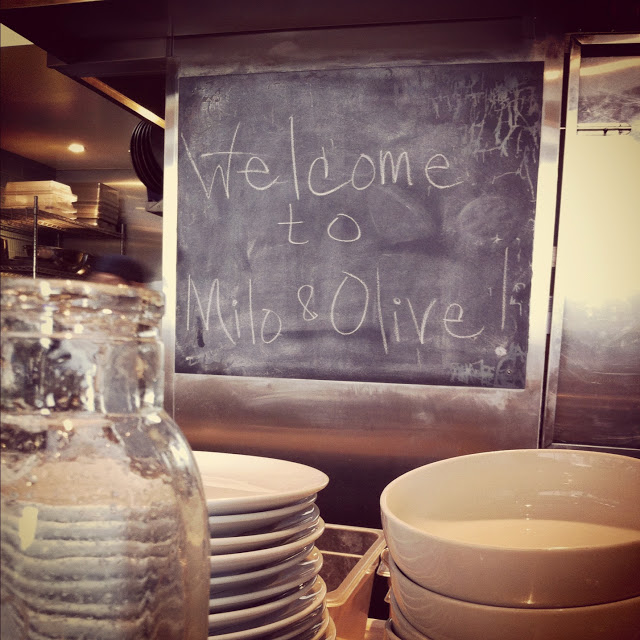 Welcome
to
Milo & Olive!